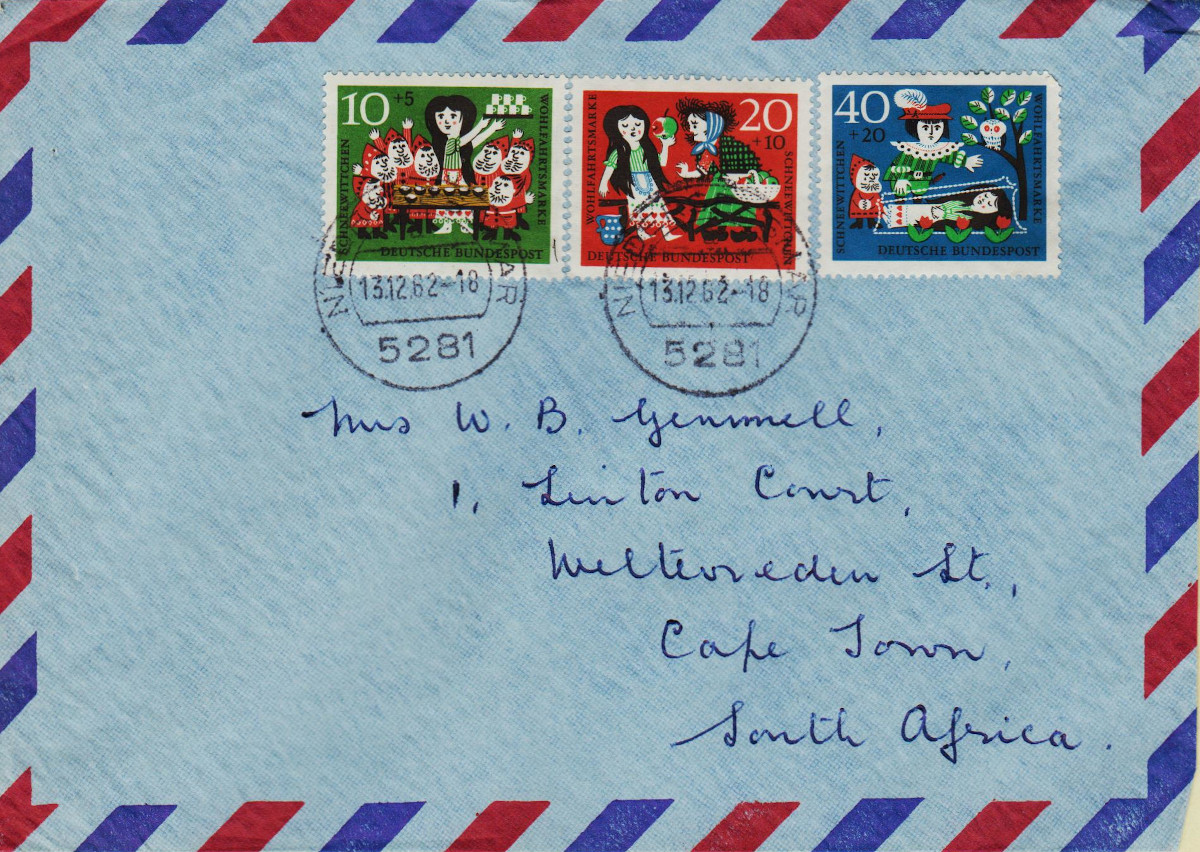 10 +5
SCHNEEWITTCHEN
WOHLFAHRTSMARKE
DEUTSCHE BUNDESPOST
WOHLFAHRTSMARKE
20
+10
SCHNEEWITTCHEN
DEUTSCHE BUNDESPOST
40
+20
SCHNEEWITTCHEN
WOHLFAHRTSMARKE
DEUTSCHE BUNDESPOST
13.12.62-18
5281
13.12.62-18
5281
Mrs W. B. Gemmell,
1, Linton Court,
Weltevreden St.,
Cape Town,
South Africa.